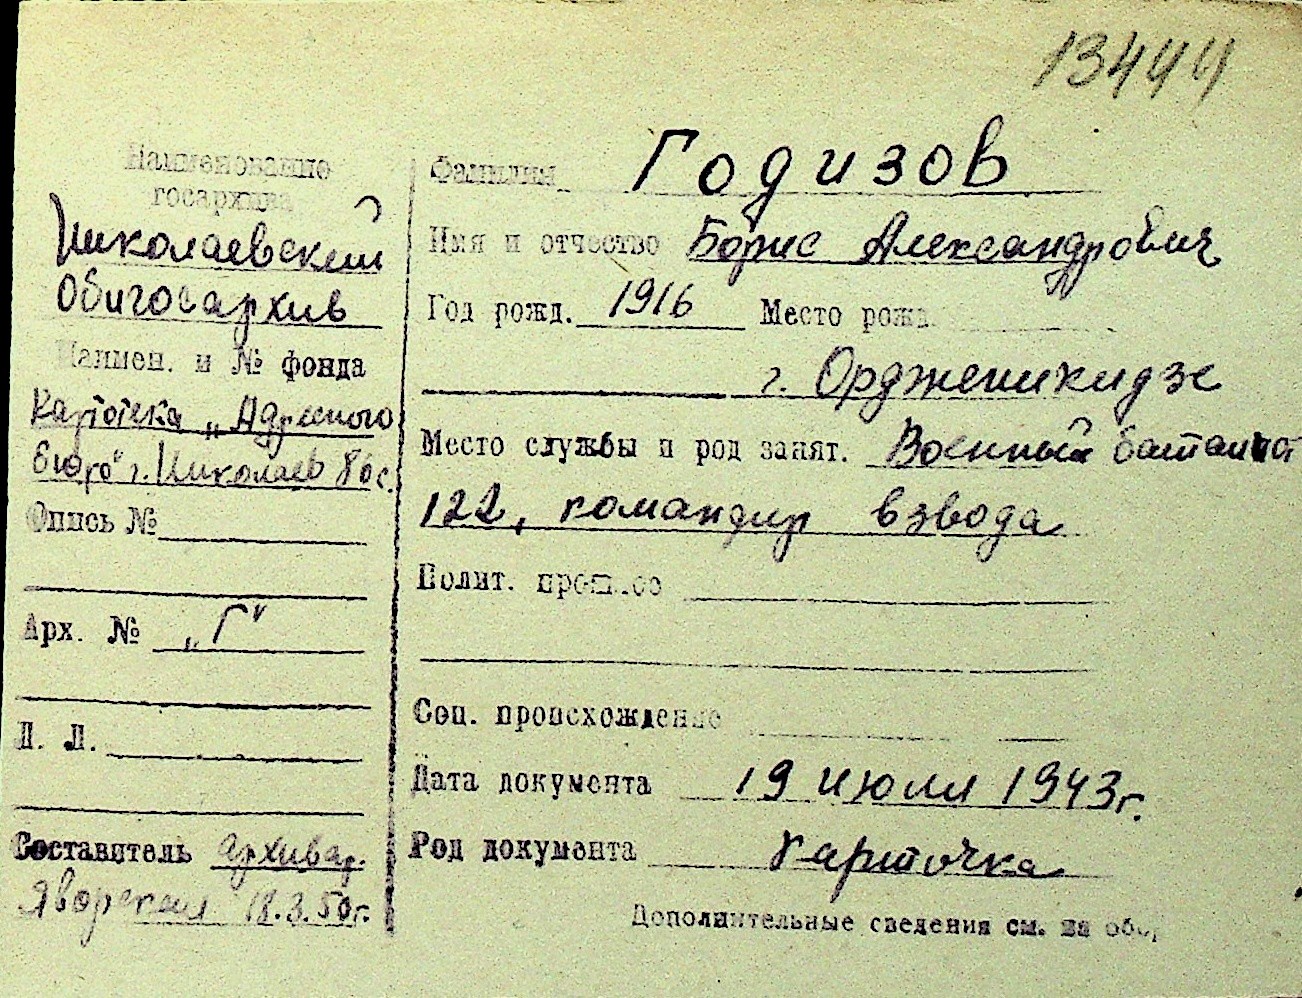 13444
Наименование
госархива
Николаевский
Облгосархив
Наимен. и № фонда
Картотека „Адресного
бюро" г. Николаев
Опись №
Арх. № „Г"
Л. Л.
Составитель архивар.
Яворская 18.3.50г.
Фамилия Годизов
Имя и отчество Борис Александрович
Год рожд. 1916 Место рожд.
г. Ордженикидзе
Место службы и род занят. Военный батальон
122, командир взвода
Полит. прошлое
Соц. происхождение
Дата документа 19 июля 1943г.
Род документа карточка
Дополнительные сведения см. на обо.